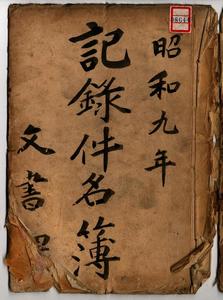 昭和九年
記錄件名簿
文書